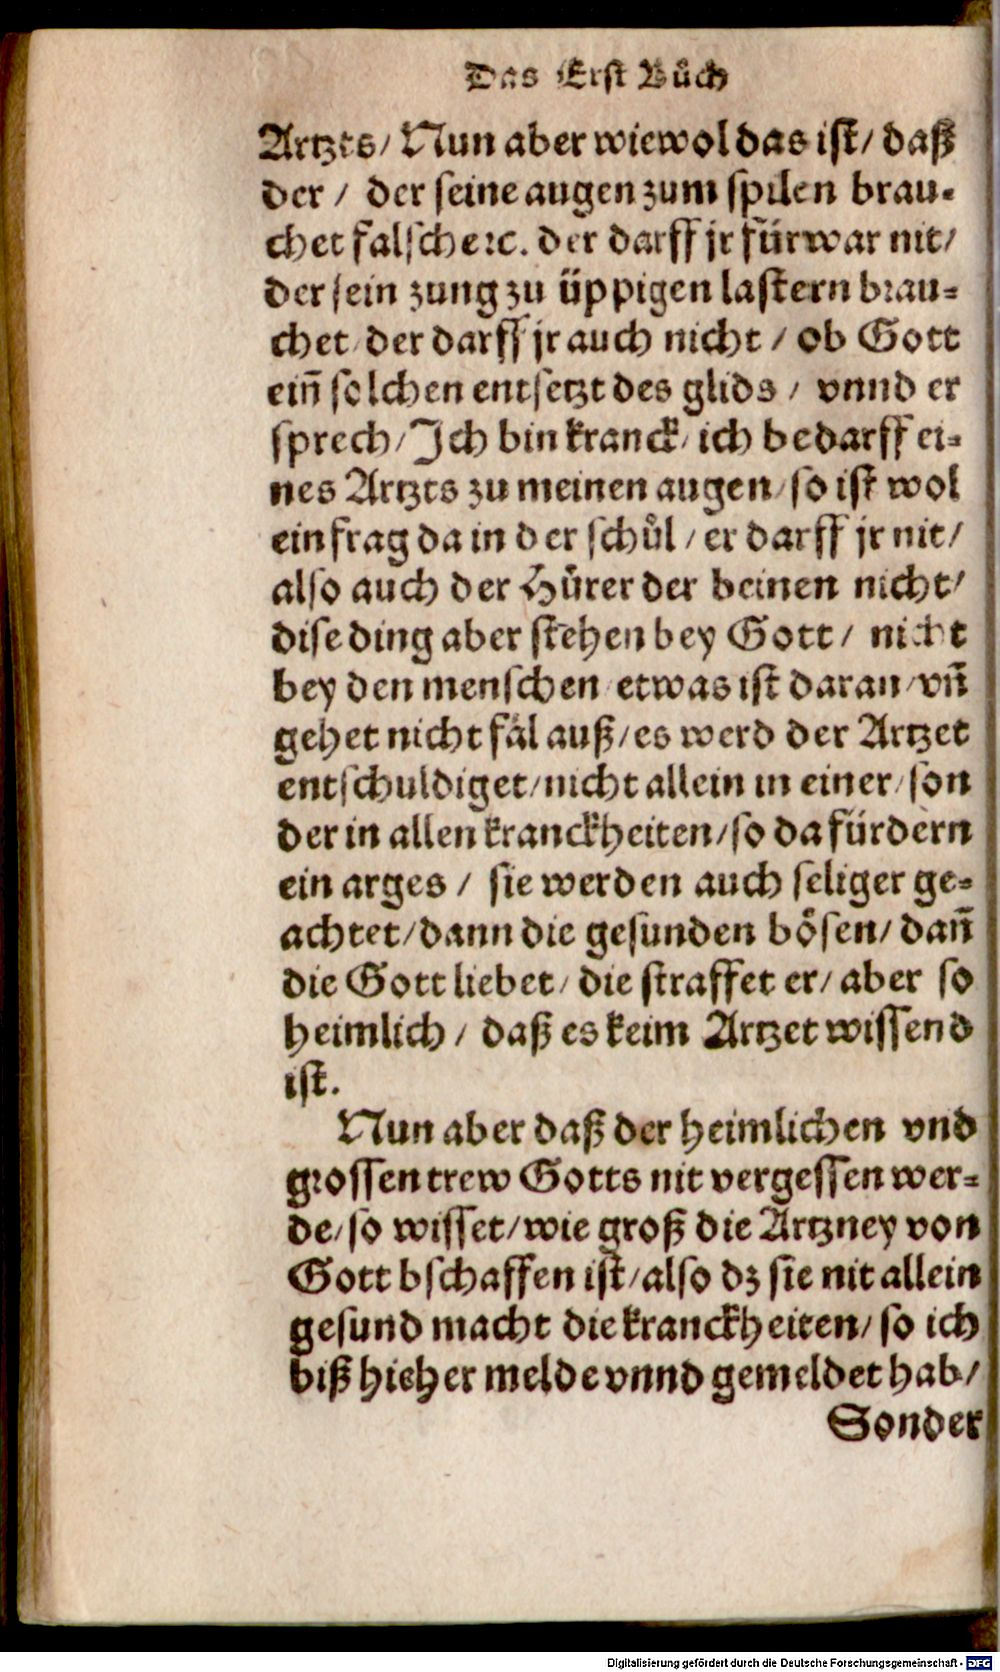 Das Erst Bůch
Artzts/ Nun aber wiewol das ist/ daß
der / der seine augen zum spilen brau-
chet falsch ꝛc. der darff jr fürwar nit/
der sein zung zu üppigen lastern brau-
chet/ der darff jr auch nicht / ob Gott
ein̄ solchen entsetzt des glids / vnnd er
sprech/ Jch bin kranck/ ich bedarff ei-
nes Artzts zu meinen augen/ so ist wol
ein frag da in der schůl / er darff jr nit/
also auch der Hůrer der beinen nicht/
dise ding aber stehen bey Gott / nicht
bey den menschen/ etwas ist daran/ vn̄
gehet nicht fäl auß/ es werd der Artzet
entschuldiget/ nicht allein in einer/ son
der in allen kranckheiten/ so da fürdern
ein arges / sie werden auch seliger ge-
achtet/ dann die gesunden bösen/ dan̄
die Gott liebet/ die straffet er/ aber so
heimlich / daß es keim Artzet wissend
ist.
Nun aber daß der heimlichen vnd
grossen trew Gotts nit vergessen wer-
de/ so wisset/ wie groß die Artzney von
Gott bschaffen ist/ also dz sie nit allein
gesund macht die kranckheiten/ so ich
biß hieher melde vnnd gemeldet hab/
Sonder
Digitalisierung gefördert durch die Deutsche Forschungsgemeinschaft - DFG